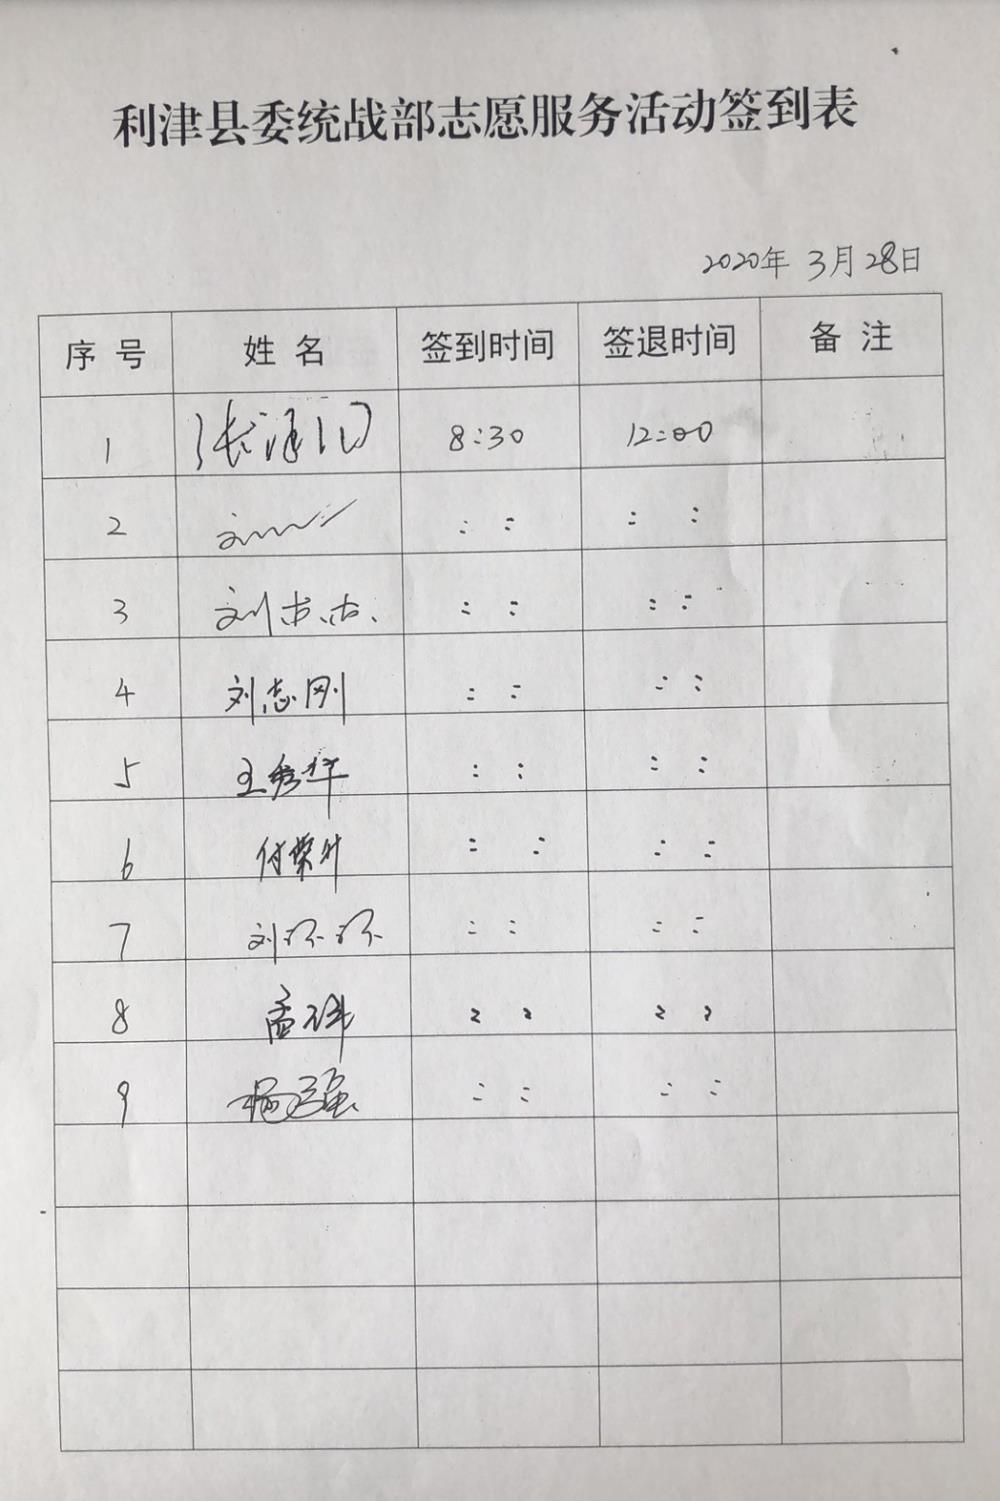 利津县委统战部志愿服务活动签到表
2020年 3月28日
序号 姓名 签到时间 签退时间 备注
1 8:30 12:00
2 : : : :
3 刘 : : : :
4 刘志刚 : : : :
5 王秀华 : : : :
6 付荣升 : : : :
7 刘环环 : : : :
8 孟祥 : : : :
9 杨强 : : : :